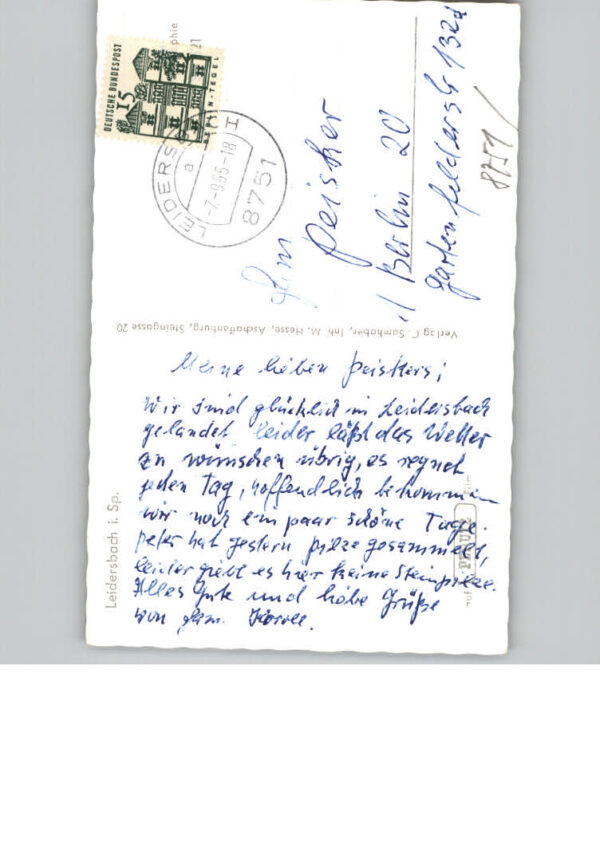 Meine lieben Peiskers!
Wir sind glücklich in Leidersbach
gelandet, leider läßt das Wetter
zu wünschen übrig, es regnet
jeden Tag, hoffendlich bekommen
wir noch ein paar schöne Tage.
Peter hat gestern Pilze gesammelt,
leider giebt es hier keine Steinpilze.
Alles Gute und liebe Grüße
von Fam.
Leidersbach i. Sp.
Verlag C. Samhaber, Inh. M. Hesse, Aschaffenburg, Steingasse 20
Fam
Peisker
1 Berlin 20
Gartenfelderstr 132d
8751/
DEUTSCHE BUNDESPOST
15
BERLIN-TEGEL
LEIDERS
a
-7.-9.65-18
8751
phie
21
auf